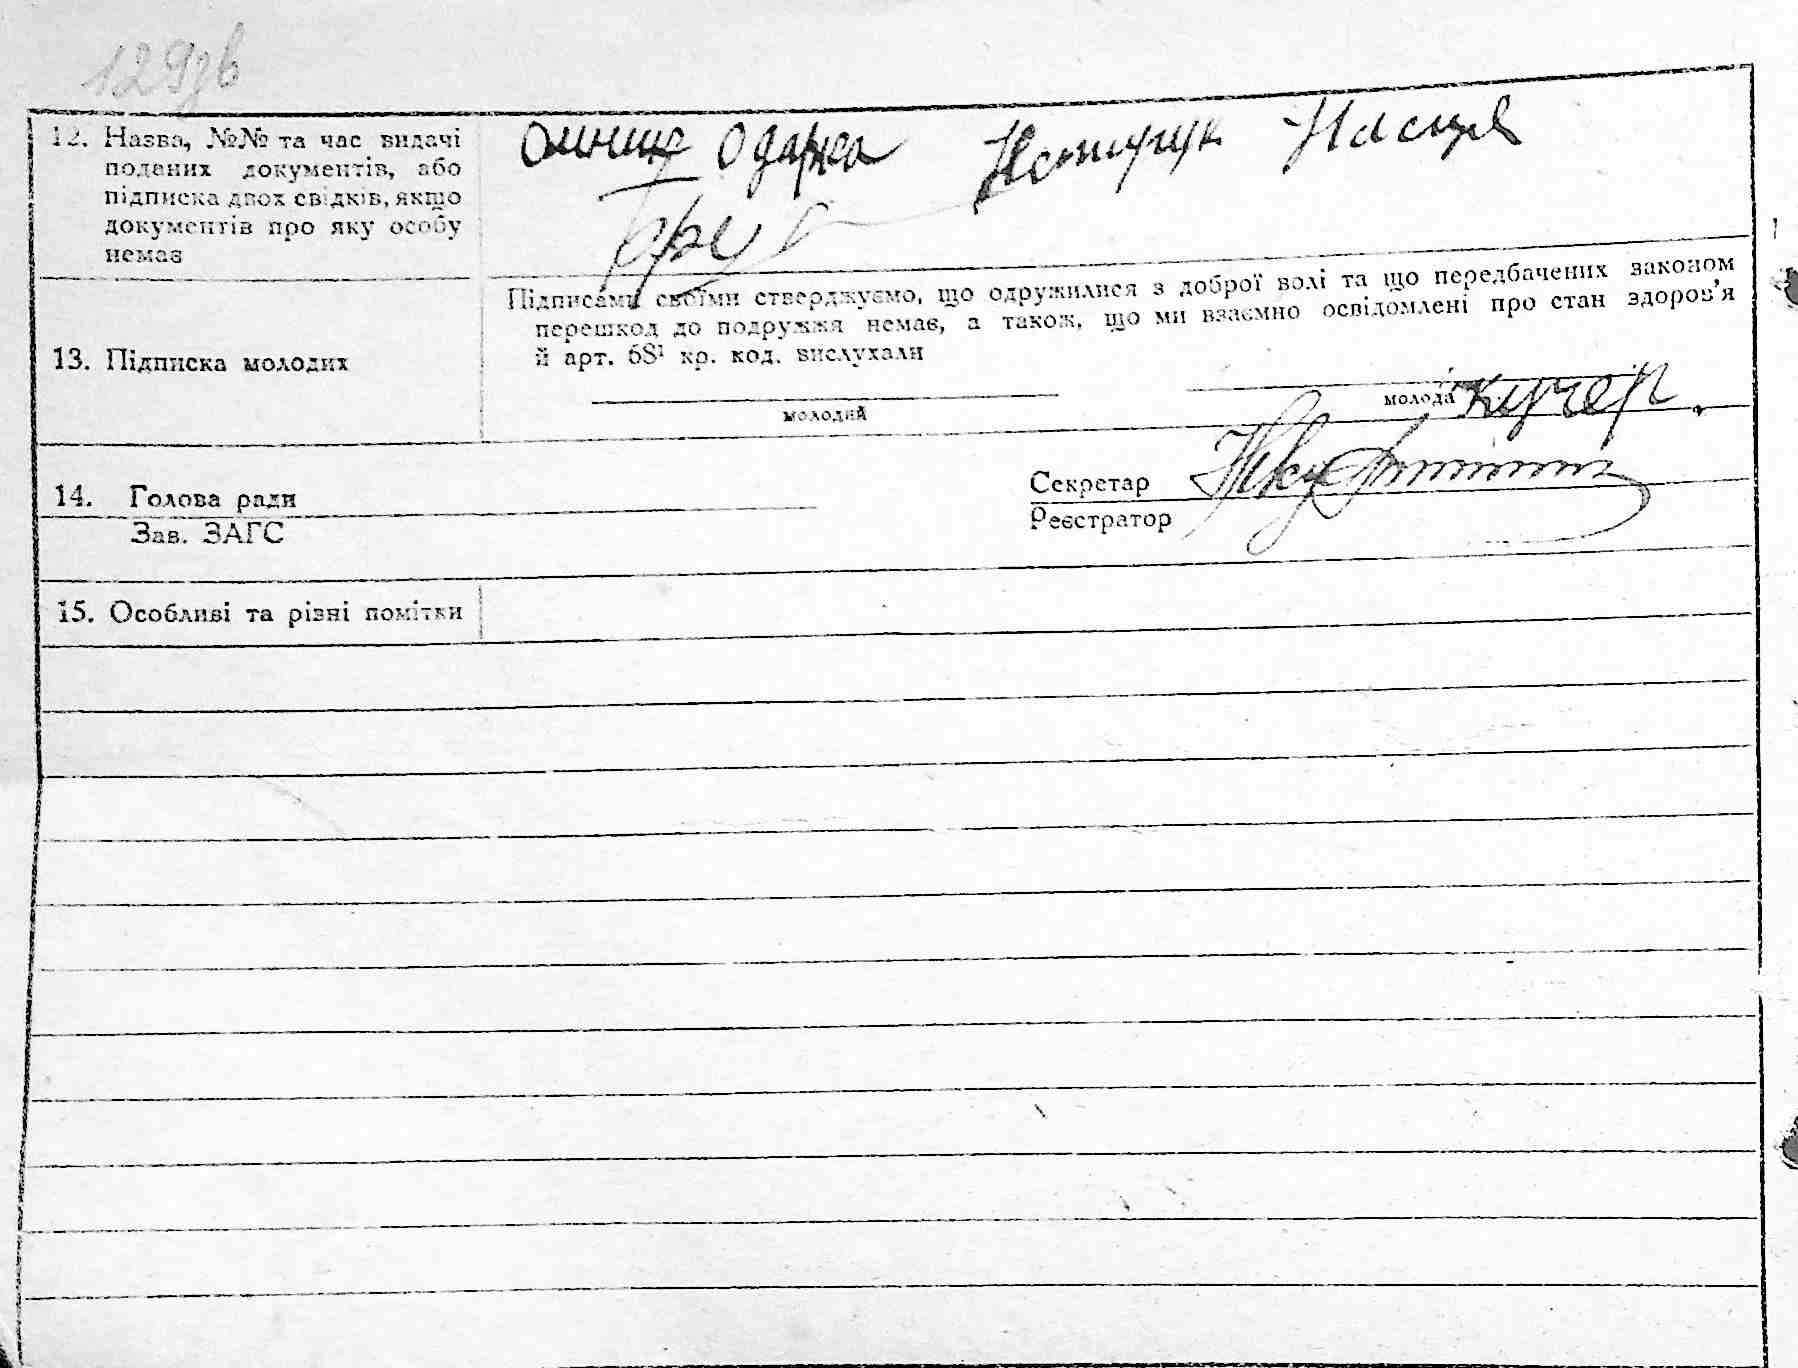 129зв
12. Назва, №№ та час видачі
поданих документів, або
підписка двох свідків, якщо
документів про яку особу
немає
Одарка
Підписами своїми стверджуємо, що одружилися з доброї волі та що передбачених законом
перешкод до подружжя немає, а також, що ми взаємно освідомлені про стан здоров'я
й арт. 68¹ кр. код. вислухали
13. Підписка молодих
молодий
молода Кучер
14. Голова ради
Зав. ЗАГС
Секретар
Реєстратор
15. Особливі та різні помітки